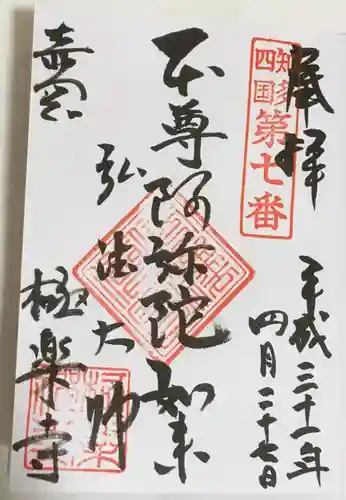 奉拝
知多四国第七番
平成三十一年
四月二十七日
本尊阿弥陀如来
弘法大師
極楽寺